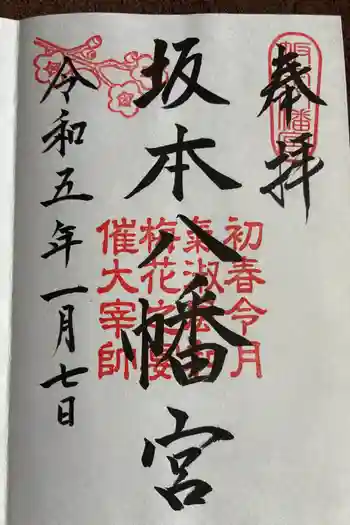 奉拝
坂本八幡宮
初春令月
氣淑風和
梅花之宴
催大宰帥
令和五年一月七日